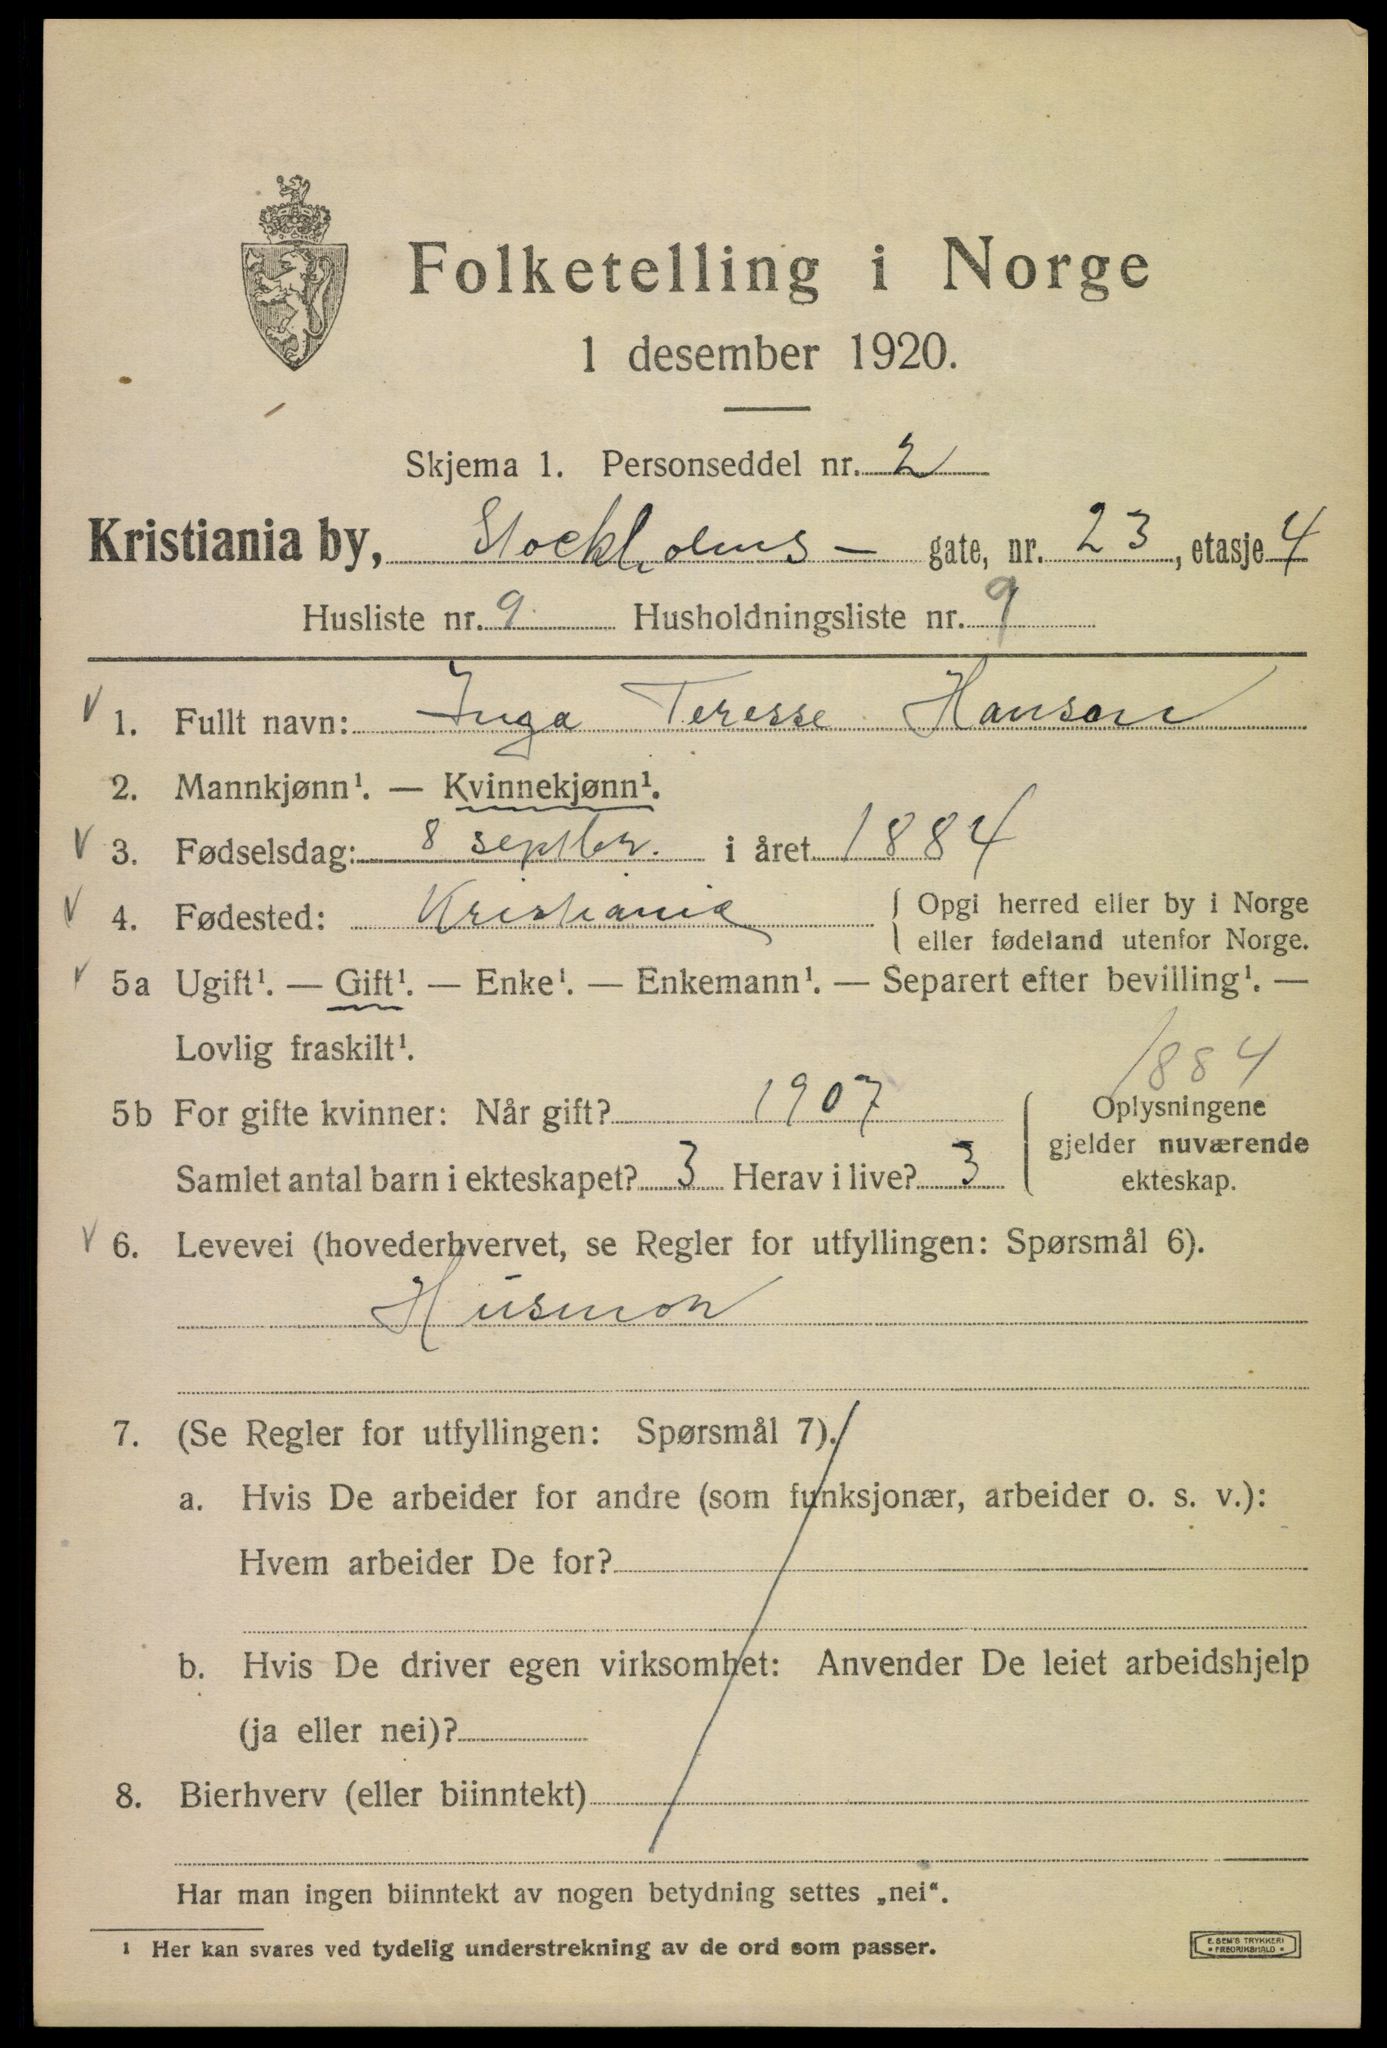 Folketelling i Norge
1 desember 1920.
Skjema 1. Personseddel nr. 2
Kristiania by, Stockholms - gate, nr. 23, etasje 4
Husliste nr. 9 Husholdningsliste nr. 9
V 1. Fullt navn: Inga Teresse Hansen
2. Mannkjønn¹. — Kvinnekjønn¹.
V 3. Fødselsdag: 8 septbr. i året 1884
V 4. Fødested: Kristiania { Opgi herred eller by i Norge
eller fødeland utenfor Norge.
V 5a Ugift¹. — Gift¹. — Enke¹. — Enkemann¹. — Separert efter bevilling¹. —
Lovlig fraskilt¹.
1884
5b For gifte kvinner: Når gift? 1907 { Oplysningene
gjelder nuværende
Samlet antal barn i ekteskapet? 3 Herav i live? 3 ekteskap.
V 6. Levevei (hovederhvervet, se Regler for utfyllingen: Spørsmål 6).
Husmor
7. (Se Regler for utfyllingen: Spørsmål 7).
a. Hvis De arbeider for andre (som funksjonær, arbeider o. s. v.):
Hvem arbeider De for?
b. Hvis De driver egen virksomhet: Anvender De leiet arbeidshjelp
(ja eller nei)?
8. Bierhverv (eller biinntekt)
Har man ingen biinntekt av nogen betydning settes „nei“.
¹ Her kan svares ved tydelig understrekning av de ord som passer.
E. SEM'S TRYKKERI
* FREDRIKSHALD *